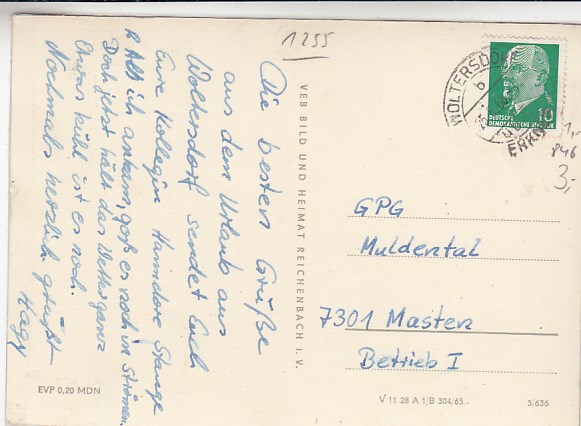 1255
Die besten Grüße
aus dem Urlaub aus
Woltersdorf sendet Euch
Eure Kollegin Hannelore Stange
Als ich ankam, goß es noch in Strömen.
Doch jetzt hält das Wetter ganz
Etwas kühl ist es noch.
Nochmals herzlich grüßt
VEB BILD UND HEIMAT REICHENBACH I. V.
WOLTERSDORF
ERKN
10
DEUTSCHE
DEMOKRATISCHE REPUBLIK
846
3,-
GPG
Muldental
7301 Masten
Betrieb I
EVP 0,20 MDN
V 11 28 A 1/B 304/65
5/636